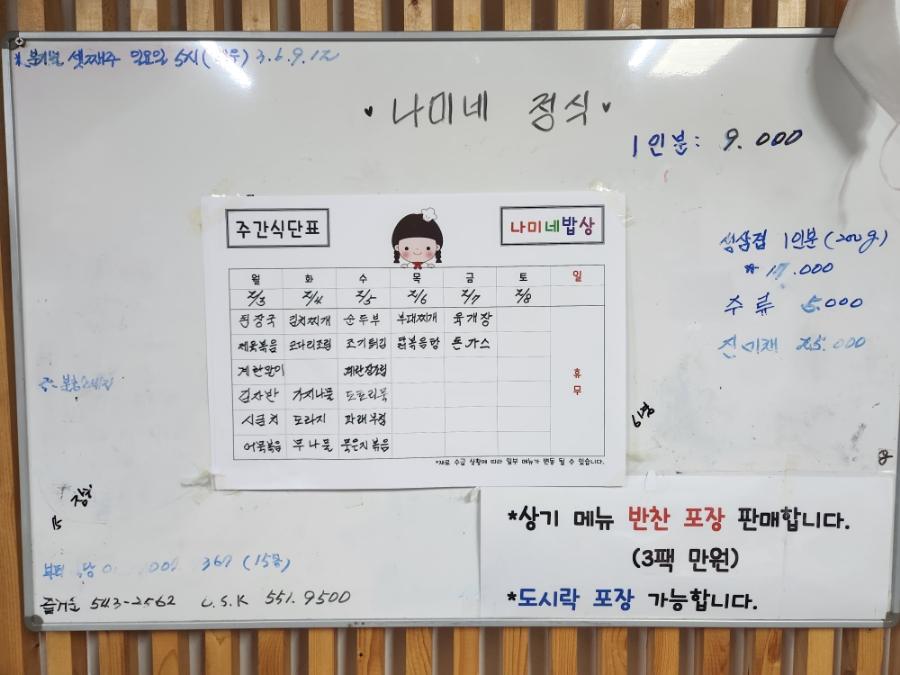 셋째주 일요일 5시 3.6.9.12
♥ 나미네 정식 ♥
1인분: 9.000
생삼겹 1인분(200g)
17.000
주류 5.000
진미채 25.000
주간식단표
나미네밥상
월 화 수 목 금 토 일
2/3 2/4 2/5 2/6 2/7 2/8
된장국 김치찌개 순두부 부대찌개 육개장
제육볶음 코다리조림 조기튀김 닭볶음탕 돈가스
계란말이 계란장조림
김자반 가지나물 도토리묵
시금치 도라지 파래무침
어묵볶음 무나물 묵은지볶음
휴무
*재료 수급 상황에 따라 일부 메뉴가 변동 될 수 있습니다.
6명
*상기 메뉴 반찬 포장 판매합니다.
(3팩 만원)
*도시락 포장 가능합니다.
부터
543-2562 U.S.K 551.9500